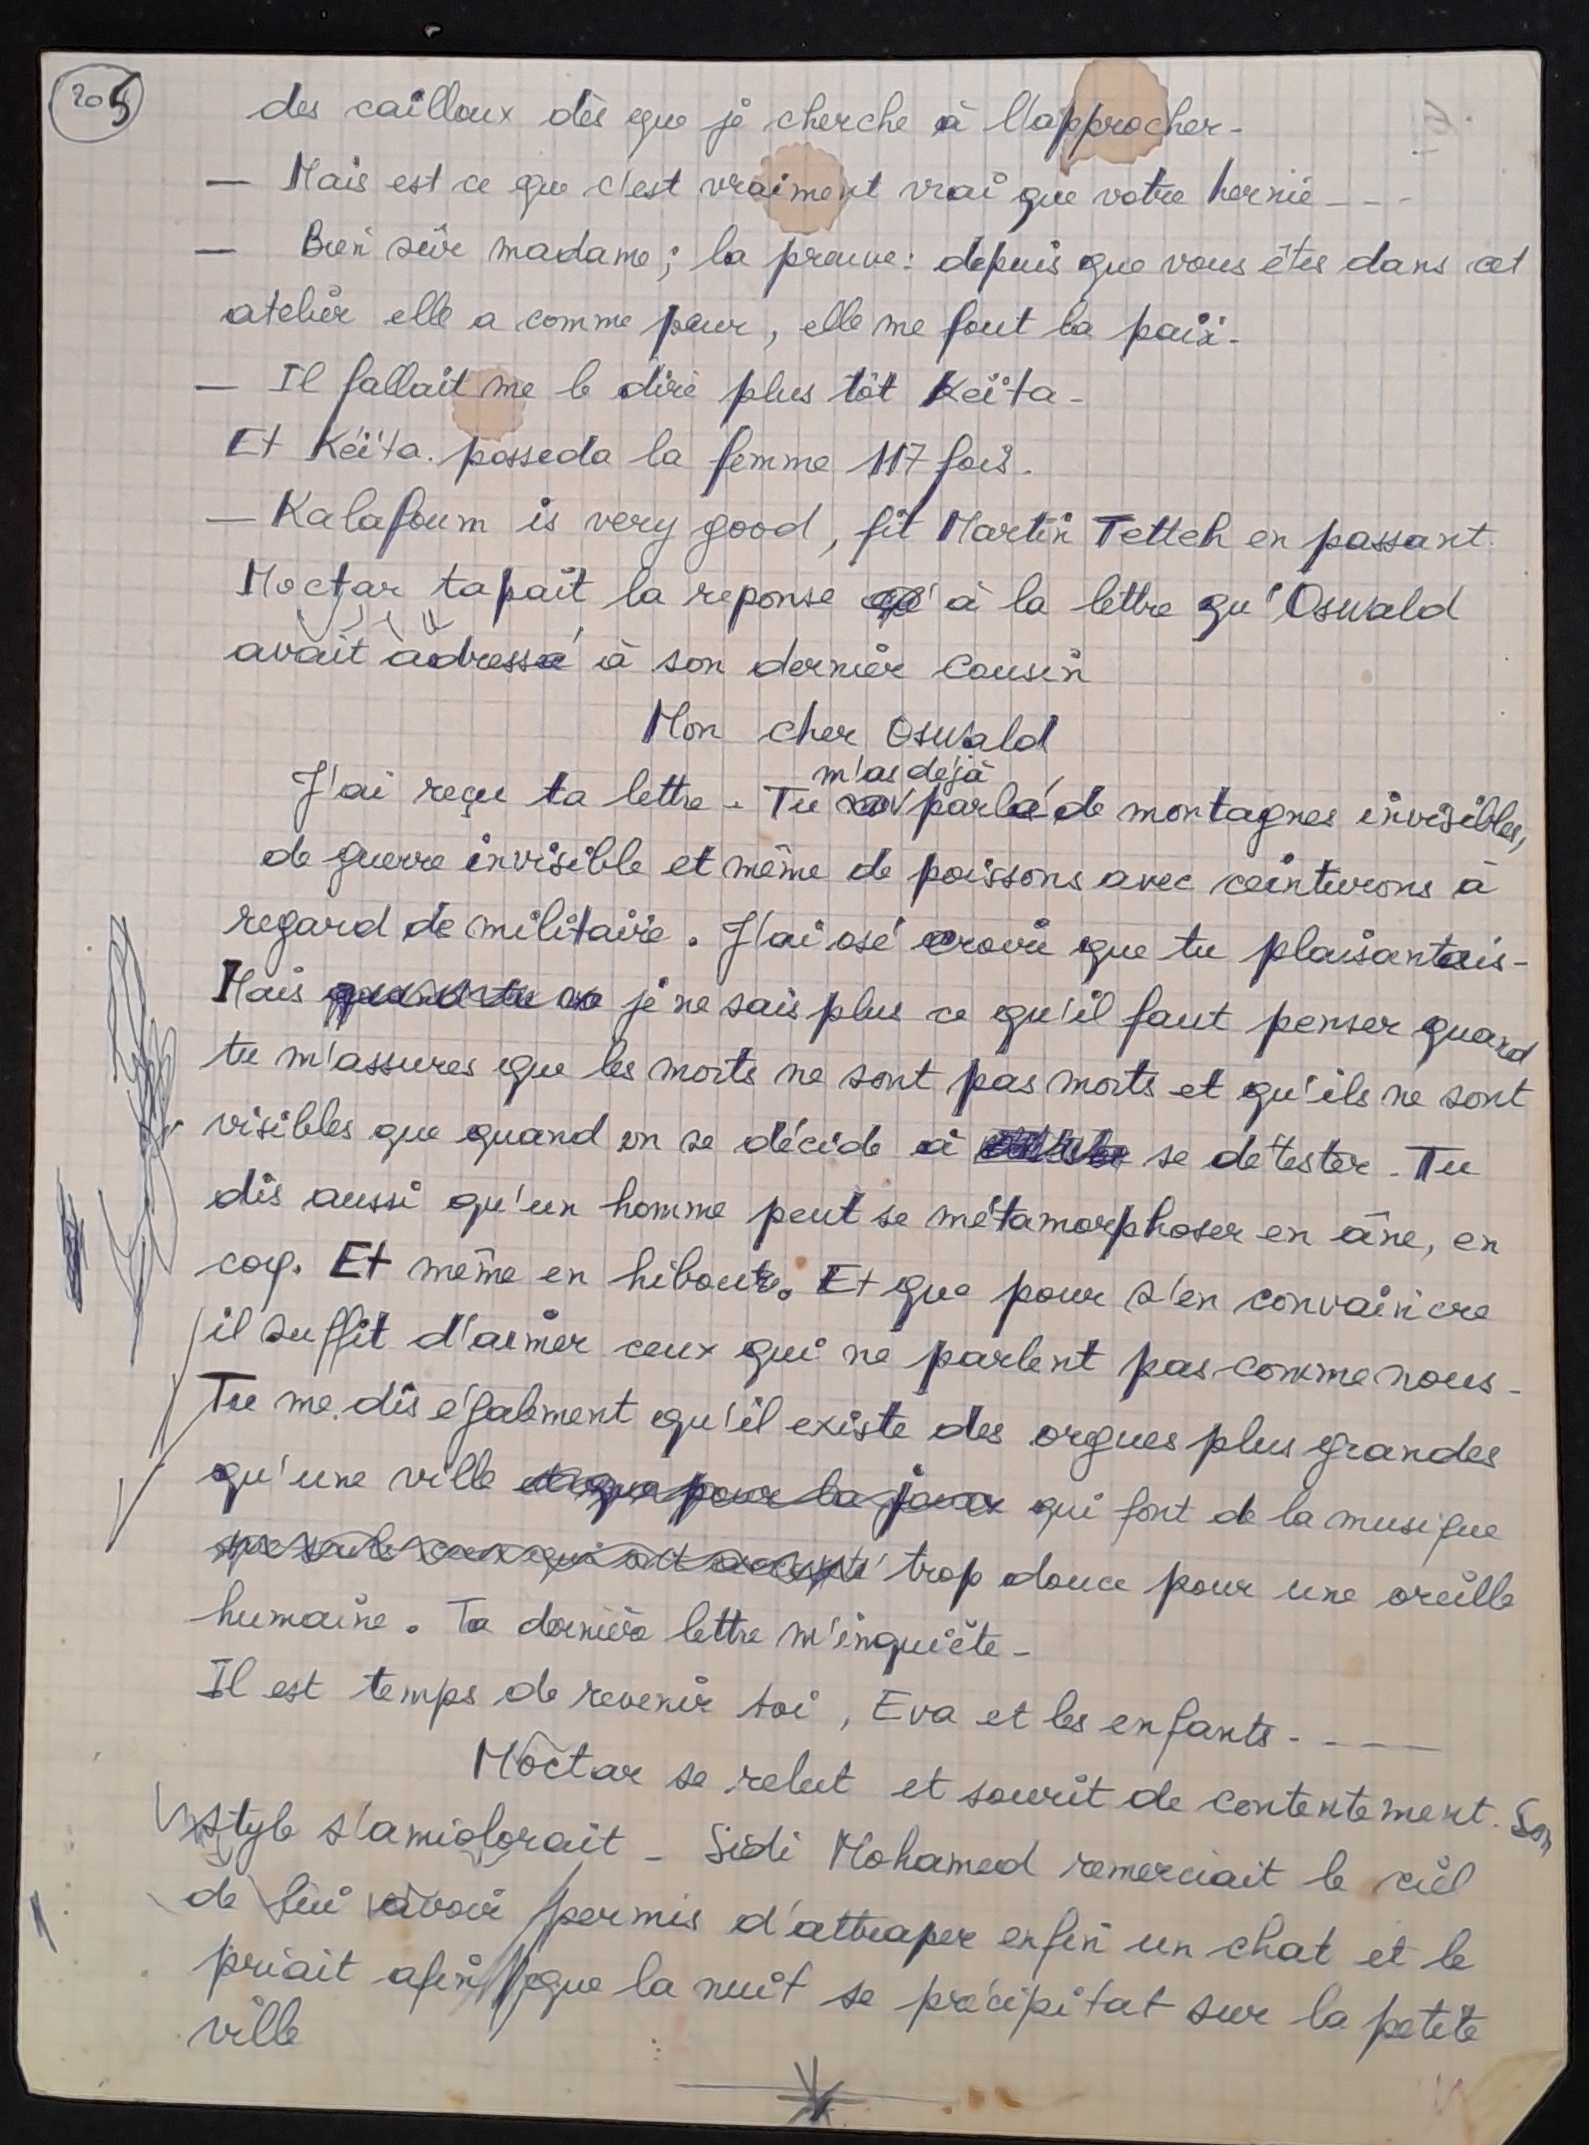 205
des cailloux dès que je cherche à l'approcher -
— Mais est ce que c'est vraiment vrai que votre hernie - - -
— Bien sûr madame ; la preuve : depuis que vous êtes dans cet
atelier elle a comme peur, elle me fout la paix -
— Il fallait me le dire plus tôt Keïta -
Et Kéïta posseda la femme 117 fois.
— Kalafoum is very good, fit Martin Tetteh en passant.
Moctar tapait la reponse à la lettre qu'Oswald
avait adressé à son dernier cousin
Mon cher Oswald
m'as déjà
J'ai reçu ta lettre - Tu parlé de montagnes invisibles,
de guerre invisible et même de poissons avec ceinturons à
regard de militaire. J'ai osé croire que tu plaisantais -
Mais je ne sais plus ce qu'il faut penser quand
tu m'assures que les morts ne sont pas morts et qu'ils ne sont
visibles que quand on se décide à se détester - Tu
dis aussi qu'un homme peut se métamorphoser en âne, en
coq. Et même en hiboux. Et que pour s'en convaincre
il suffit d'aimer ceux qui ne parlent pas comme nous -
Tu me dis également qu'il existe des orgues plus grandes
qu'une ville qui font de la musique
trop douce pour une oreille
humaine. Ta dernière lettre m'inquiète -
Il est temps de revenir toi, Eva et les enfants - - - -
Moctar se relut et sourit de contentement. Son
style s'amiolorait - Sidi Mohamed remerciait le ciel
de lui avoir permis d'attraper enfin un chat et le
priait afin que la nuit se précipitat sur la petite
ville